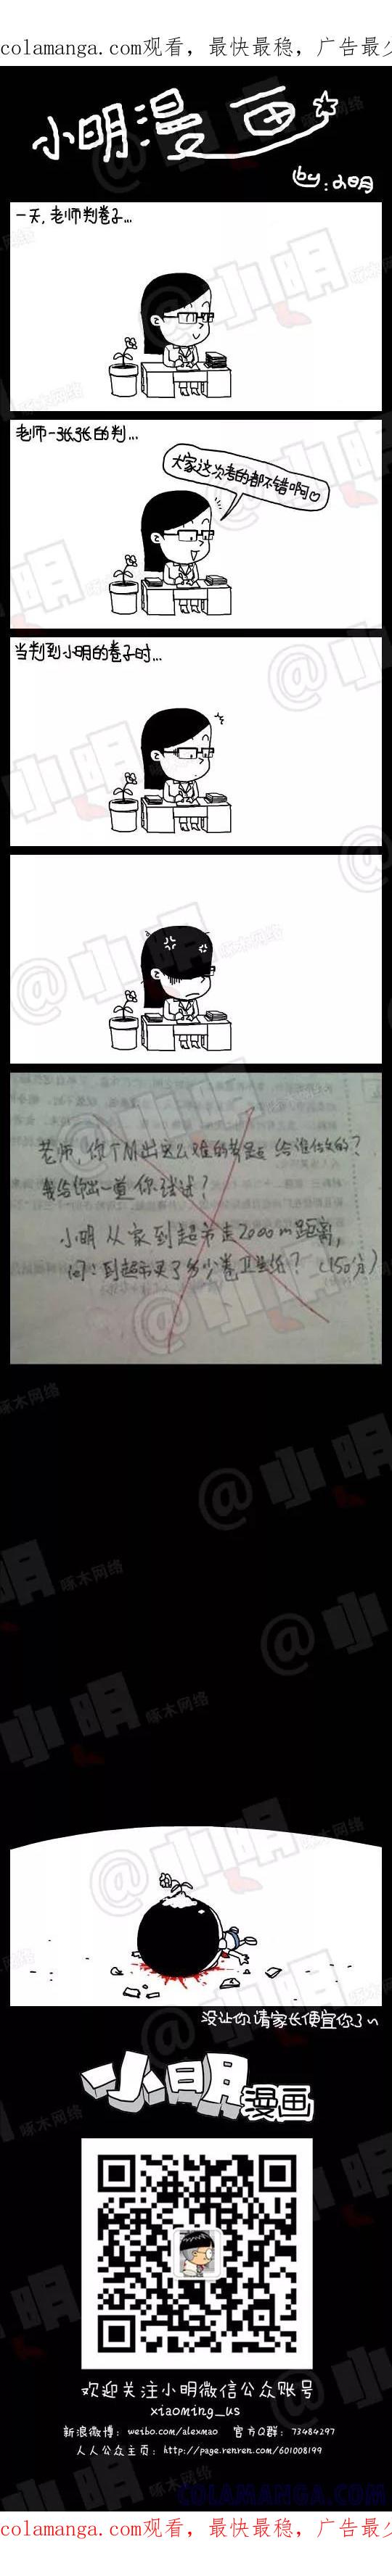 colamanga.com观看，最快最稳，广告最少
小明漫画
by:小明
一天,老师判卷子...
老师一张张的判...
大家这次考的都不错啊♡
当判到小明的卷子时...
老师,你TM出这么难的教
给谁做的?
我给你出一道你试试?
小明从家到超市走2000m距离,
问:到超市买了多少卷卫生纸?(150分)
没让你请家长便宜你了~
小明漫画
欢迎关注小明微信公众账号
xiaoming_us
新浪微博: weibo.com/alexmao 官方Q群: 73484297
人人公众主页: http://page.renren.com/601008199
COLAMANGA.COM
colamanga.com观看，最快最稳，广告最少
@小明
啄木网络